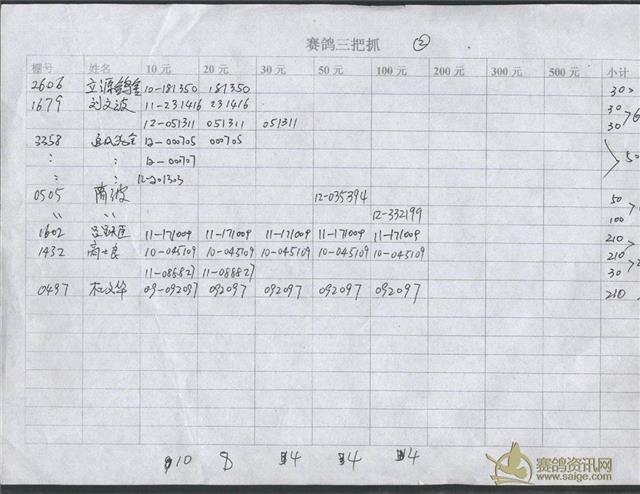 赛鸽三把抓 ②
棚号 姓名 10元 20元 30元 50元 100元 200元 300元 500元 小计
2606 立源鸽舍 10-181350 181350 30
1679 刘文波 11-231416 231416 30
12-051311 051311 051311 30
3358 000705 12-000705
" " 12-000707
" " 12-201303
0505 陶波 12-035394 50
" " 12-332199 100
1602 11-171009 11-171009 11-171009 11-171009 11-171009 210
1432 高士良 10-045109 10-045109 10-045109 10-045109 10-045109 210
11-088827 11-088827 30
0497 杜文华 09-092097 092097 092097 092097 092097 210
10 8 4 4 4
赛鸽资讯网
www.saige.com